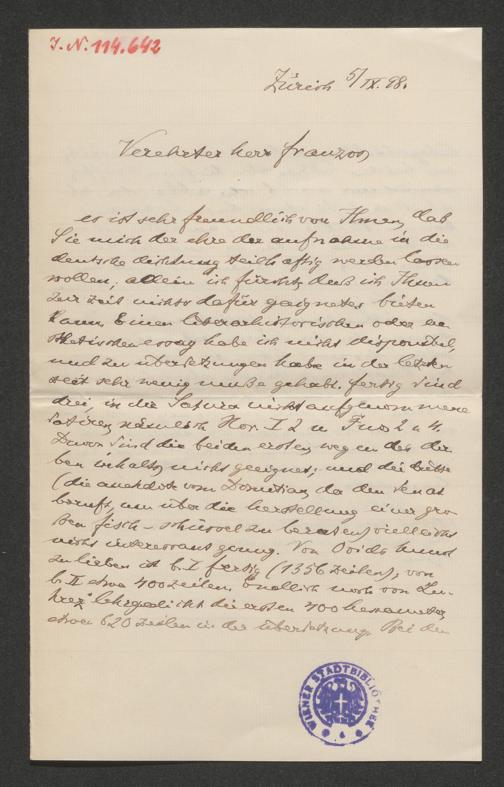 I. N. 114.642
Zürich 5/IX. 98.
Verehrter herr franzos,
es ist sehr freundlich von Ihnen, daß
Sie mich der ehre der aufnahme in die
deutsche dichtung teilhaftig werden lassen
wollen, allein ich fürchte, daß ich Ihnen
zur zeit nichts dafür geeignetes bieten
kann. Einen literarhistorischen oder ae
sthetischen essay habe ich nicht disponibel,
und zu übersetzungen habe in der letzten
zeit sehr wenig muße gehabt. fertig sind
drei, in der Satura nicht aufgenommene
satiren, nämlich Hor. I 2 u Juv 2 u 4.
Davon sind die beiden ersten wegen des der
ben inhalts nicht geeignet; und die dritte
(die anekdote vom Domitian, da den senat
beruft, um über die herstellung einer gro
ßen fisch-schüssel zu beraten) vielleicht
nicht interessant genug. Von Ovids kunst
zu lieben ist b. I fertig (1356 zeilen), von
b. II etwa 400 zeilen. Endlich noch von Lu-
krez' lehrgedicht die ersten 400 hexameter,
etwa 620 zeilen in der übersetzung. Bei den
WIENER STADTBIBLIOTHEK